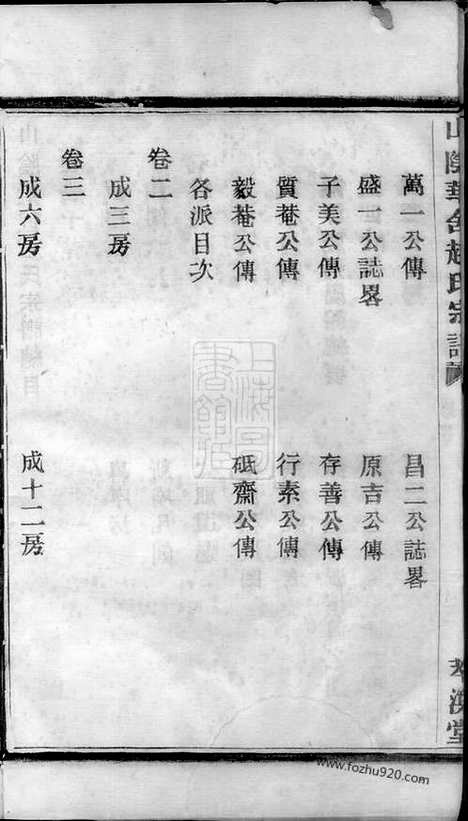 山陰華舍趙氏宗譜
萬一公傳 昌二公誌畧
盛一公誌畧 原吉公傳
子美公傳 存善公傳
質菴公傳 行素公傳
毅菴公傳 砥齋公傳
各派目次
卷二
成三房
卷三
成六房 成十二房
上海圖書館藏
www.fozhu920.com